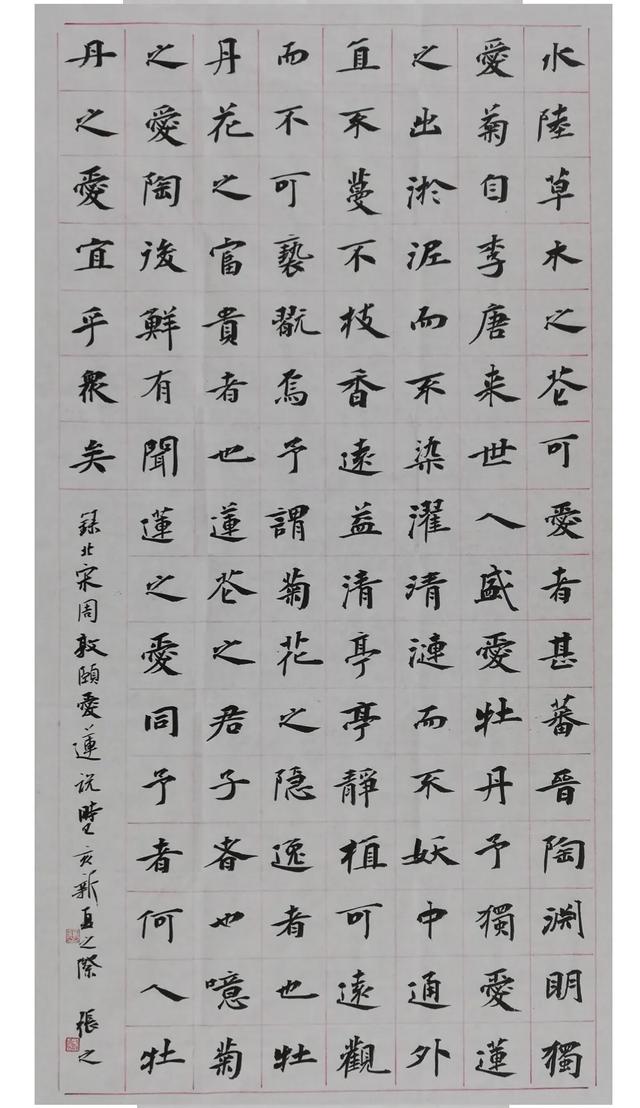 水陸草木之花可愛者甚蕃晉陶渊明獨
愛菊自李唐来世人盛愛牡丹予獨愛蓮
之出淤泥而不染濯清漣而不妖中通外
直不蔓不枝香遠益清亭亭静植可遠觀
而不可褻翫焉予謂菊花之隐逸者也牡
丹花之富貴者也蓮花之君子者也噫菊
之愛陶後鮮有聞蓮之愛同予者何人牡
丹之愛宜乎衆矣
録北宋周敦頤愛蓮説時亥新之際 張之